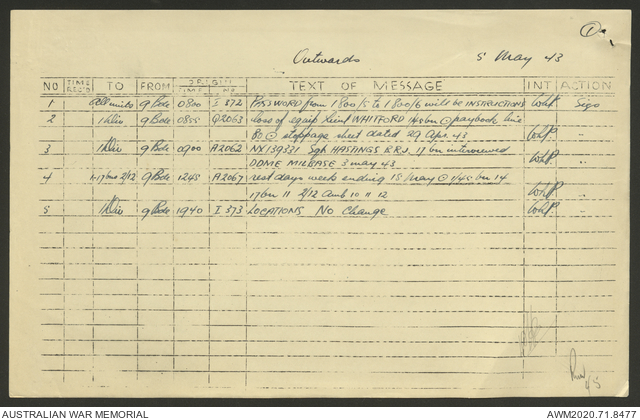 Outwards 5 May 43
NO TIME REC'D TO FROM ORIGIN TIME NO. TEXT OF MESSAGE INT ACTION
1 All units 9 Bde 0800 I 372 PASSWORD from 1800/5 to 1800/6 will be INSTRUCTIONS WhP. Sigs
2 1 Div 9 Bde 0855 Q2063 Loss of equip Lieut WHITFORD paybook line
80 @ stoppage sheet dated 29 Apr 43 WhP. "
3 1 Div 9 Bde 0900 A2062 NX139331 Sgt HASTINGS E.R.J. 17 bn interviewed
DDME MILBASE 3 may 43 WhP. "
4 1-17 bns 2/12 9 Bde 1245 A2067 rest days weeks ending 15 May @ 1/45 bn 14
17 bn 11 2/12 Amb 10 11 12 WhP. "
5 1 Div 9 Bde 1940 I 373 LOCATIONS No Change WhP. "
4/5
AUSTRALIAN WAR MEMORIAL AWM2020.71.8477